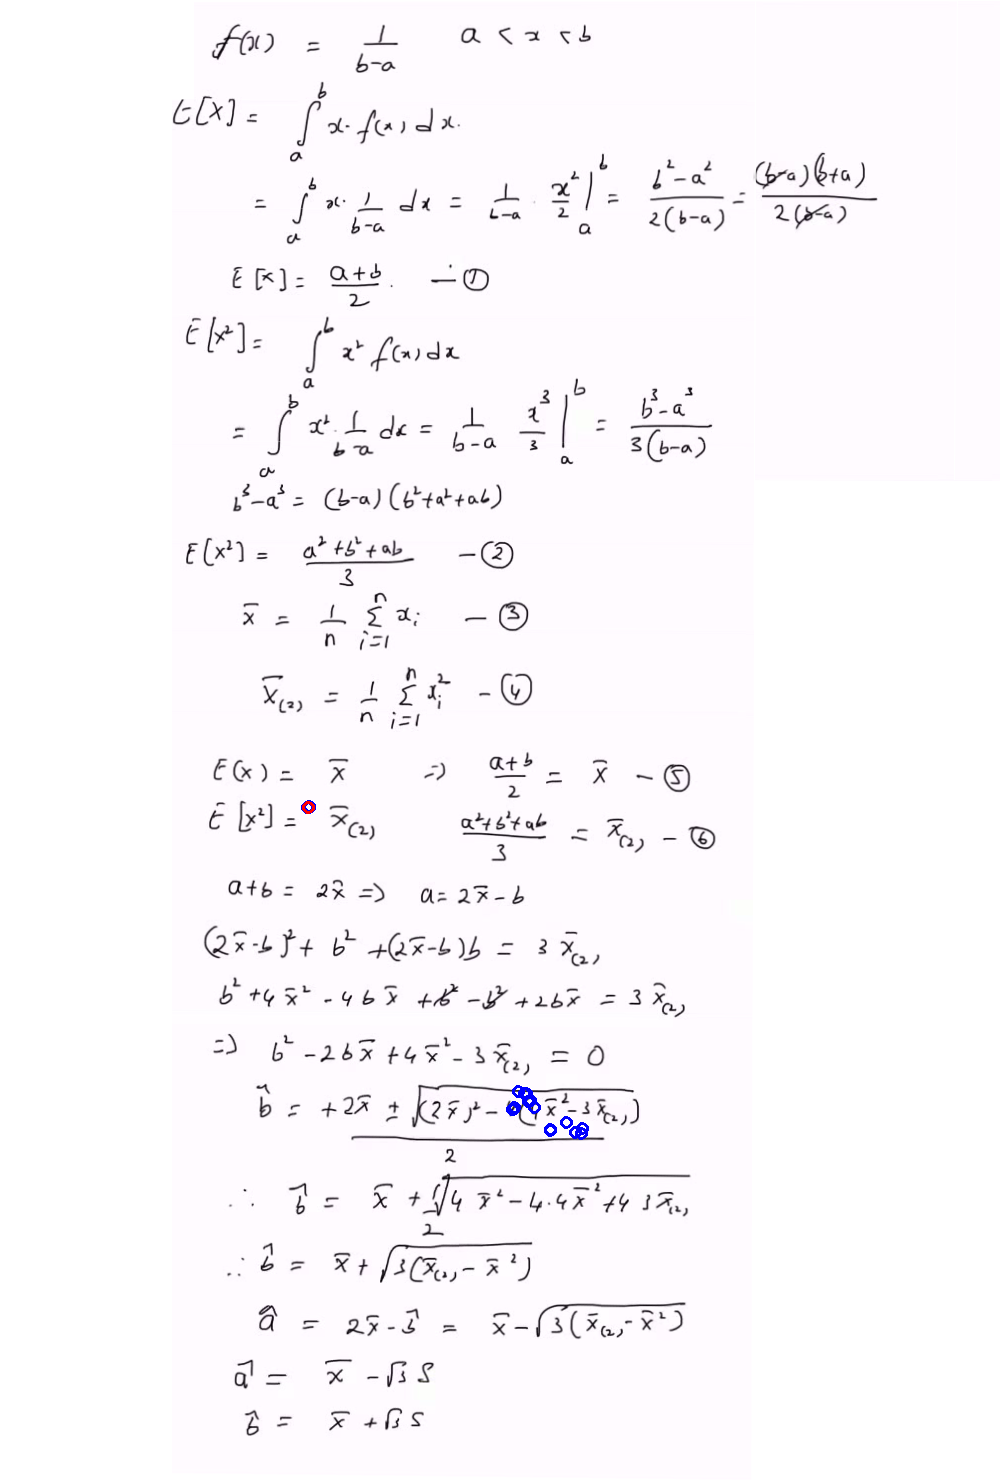 f(x) = 1/(b-a)   a < x < b
E[X] = ∫_a^b x. f(x) dx.
= ∫_a^b x. 1/(b-a) dx = 1/(b-a) . x²/2 |_a^b = (b²-a²)/(2(b-a)) = ((b-a)(b+a))/(2(b-a))
E[X] = (a+b)/2 . — ①
E[x²] = ∫_a^b x² f(x) dx
= ∫_a^b x². 1/(b-a) dx = 1/(b-a) x³/3 |_a^b = (b³-a³)/(3(b-a))
b³-a³ = (b-a)(b²+a²+ab)
E[x²] = (a²+b²+ab)/3 — ②
x̄ = 1/n Σ_{i=1}^n x_i — ③
x̄_(2) = 1/n Σ_{i=1}^n x_i² — ④
E(x) = x̄ => (a+b)/2 = x̄ — ⑤
E[x²] = x̄_(2)   (a²+b²+ab)/3 = x̄_(2) — ⑥
a+b = 2x̄ => a = 2x̄-b
(2x̄-b)² + b² + (2x̄-b)b = 3 x̄_(2)
b² + 4x̄² - 4bx̄ + b² - b² + 2bx̄ = 3 x̄_(2)
=> b² - 2bx̄ + 4x̄² - 3x̄_(2) = 0
b̂ = (+2x̄ ± √((2x̄)² - ( x̄² - 3x̄_(2))))/2
∴ b̂ = x̄ + √(4x̄² - 4.4x̄² + 4 3x̄_(2))/2
∴ b̂ = x̄ + √(3(x̄_(2) - x̄²))
â = 2x̄ - b̂ = x̄ - √(3(x̄_(2) - x̄²))
â = x̄ - √3 S
b̂ = x̄ + √3 S